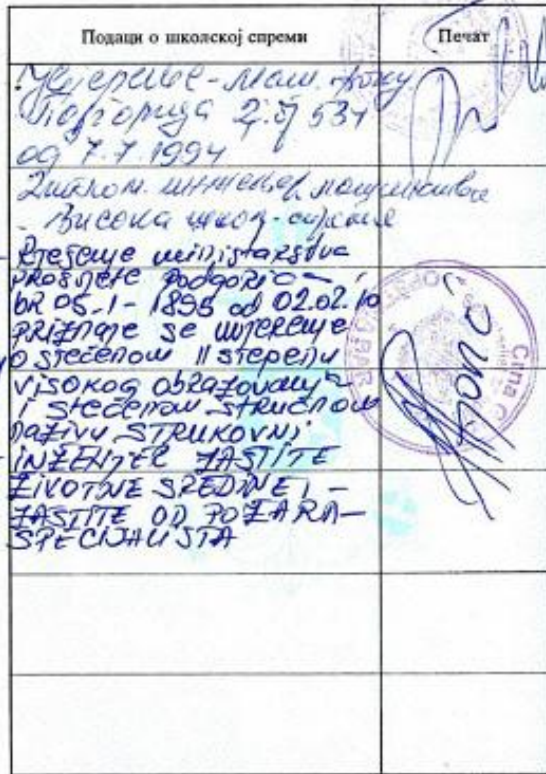 Подаци о школској спреми
Печат
Увјерење - маш. факу.
Подгорица 2. бј 534
од 7.7.1994
Диплом. инжењер машинства
- Висока школ. спрема
Rješenje ministarstva
prosvjete Podgorica
br 05-1-1895 od 02.02.10
PRIZNAJE SE UVJERENJE
O STEČENOM II STEPENU
VISOKOG OBRAZOVANJA
I STEČENOM STRUČNOM
NAZIVU STRUKOVNI
INŽENJER ZAŠTITE
ŽIVOTNE SREDINE I -
ZAŠTITE OD POŽARA-
SPECIJALISTA
Crna G